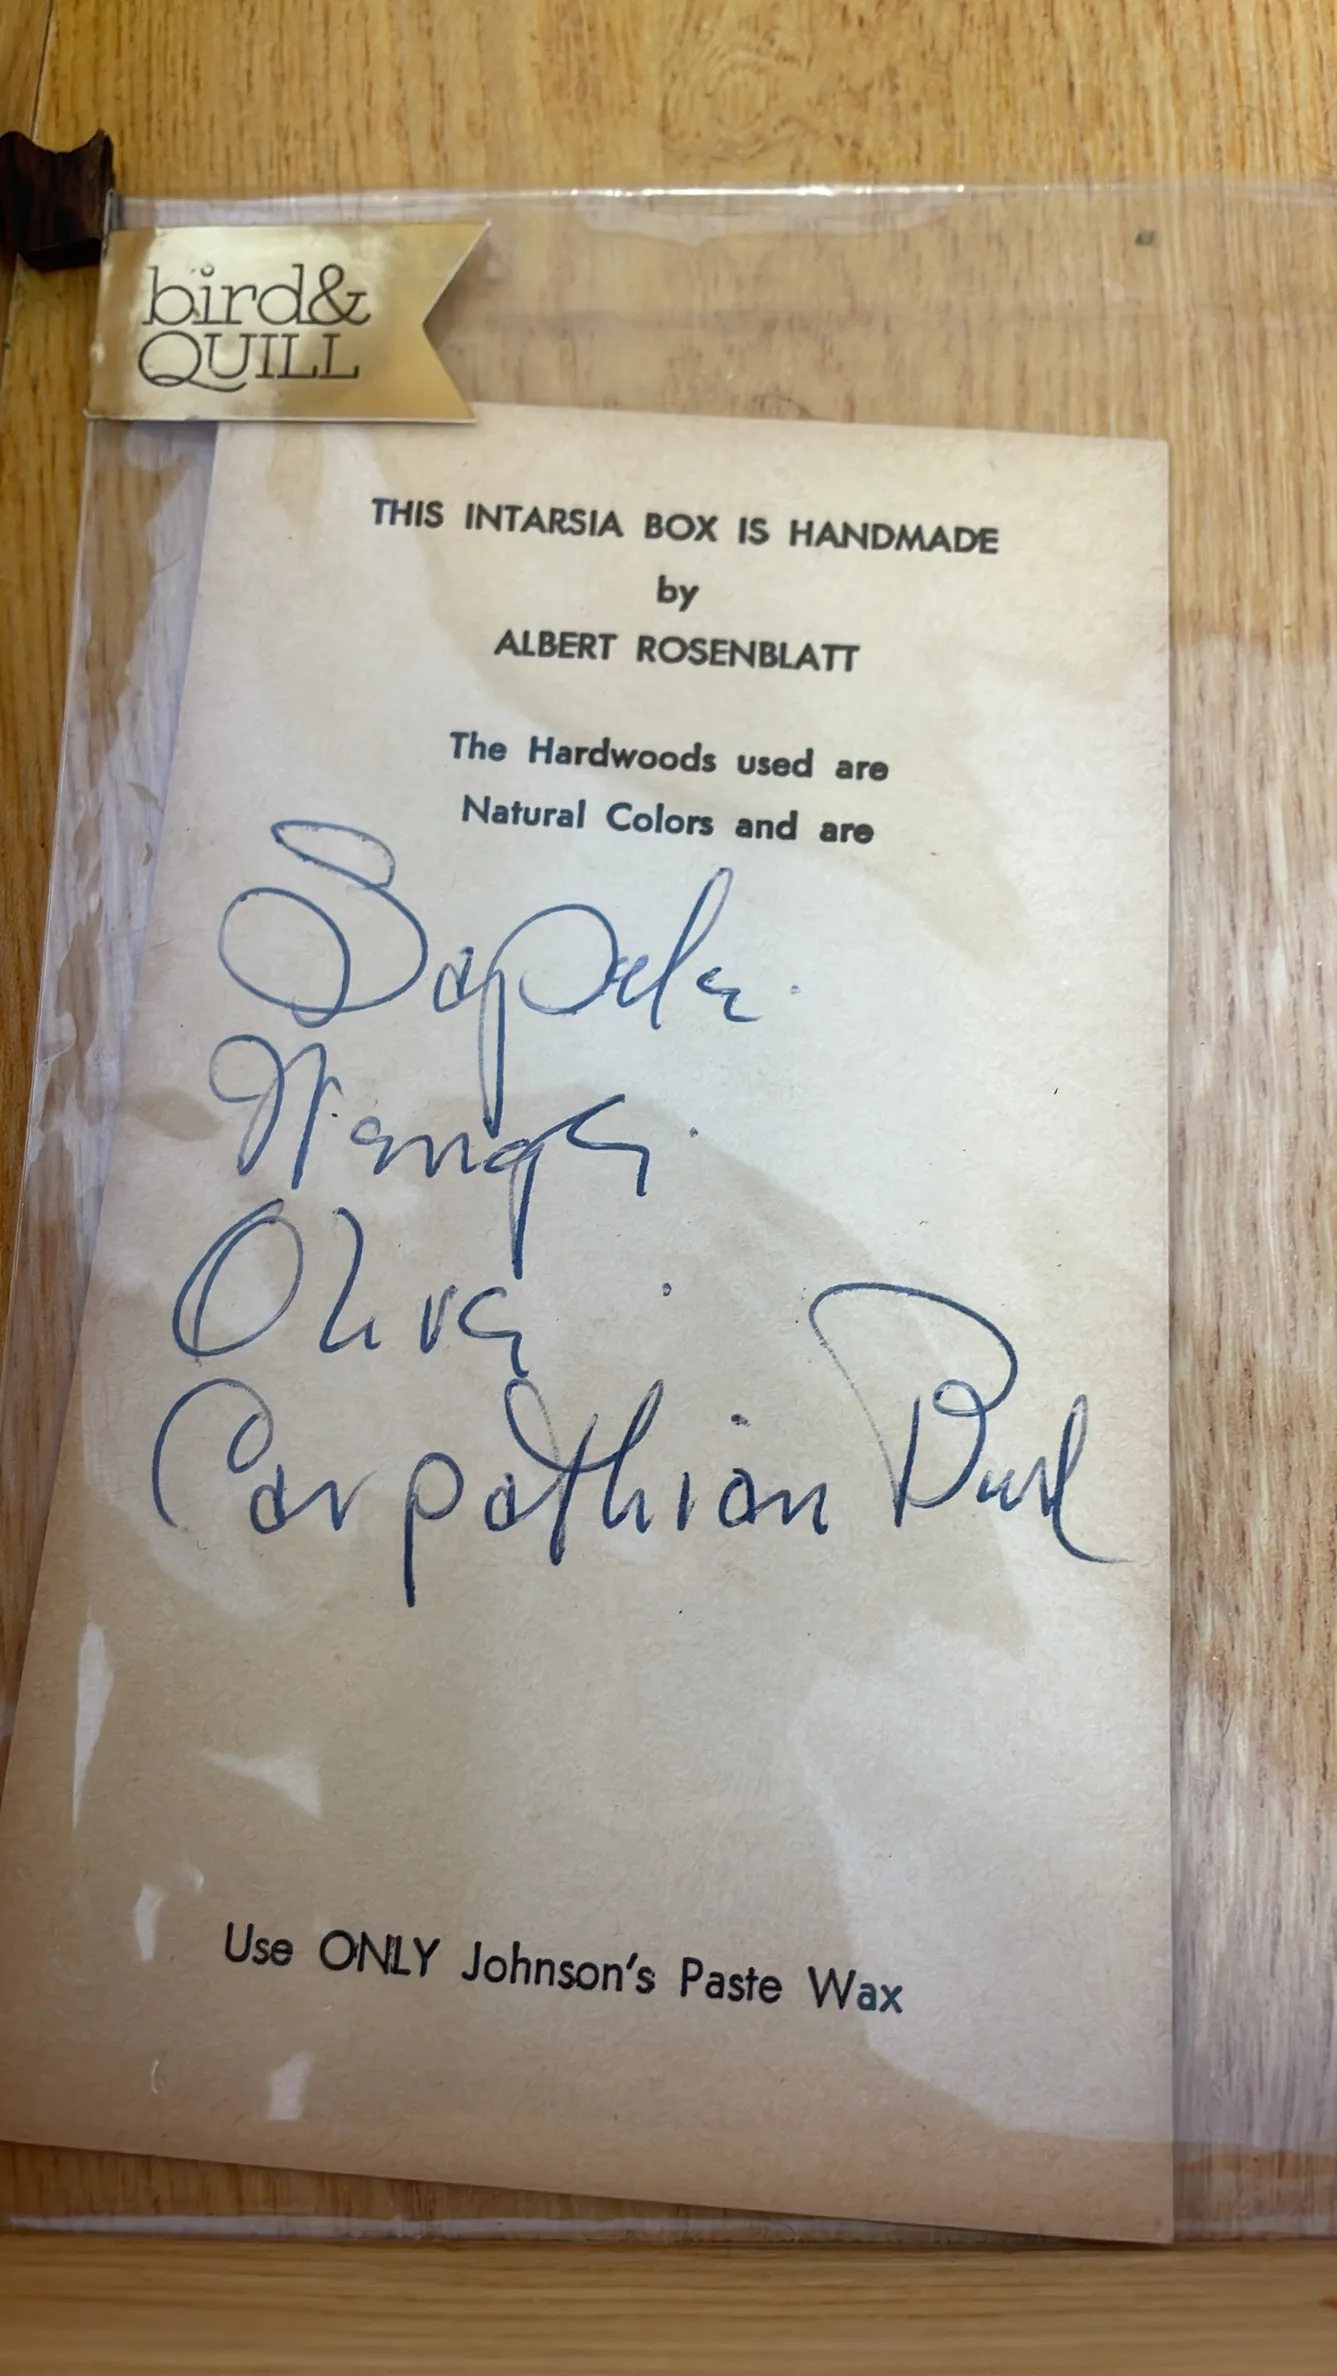 bird&
QUILL
THIS INTARSIA BOX IS HANDMADE
by
ALBERT ROSENBLATT
The Hardwoods used are
Natural Colors and are
Sapele
Wenge
Olive
Carpathian Burl
Use ONLY Johnson's Paste Wax